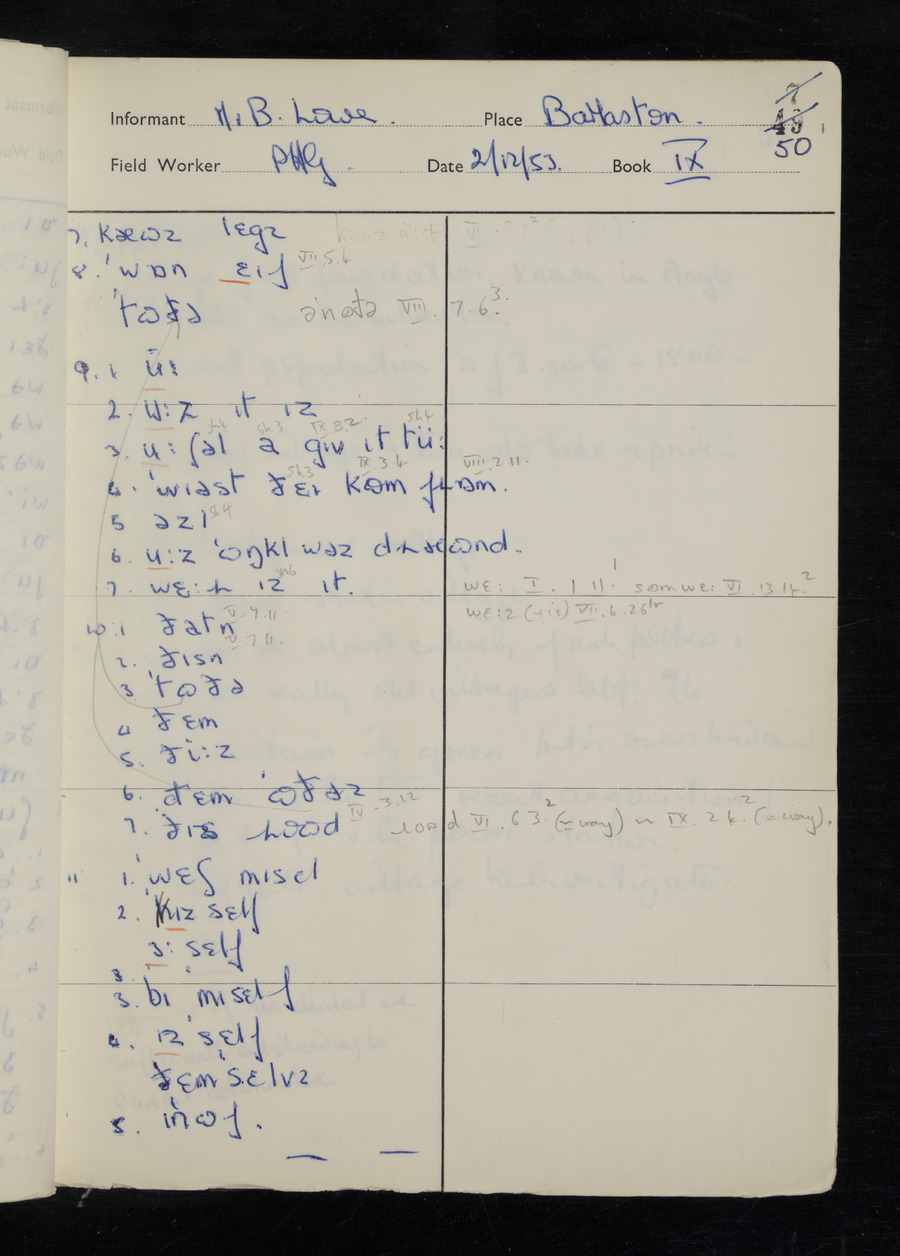 Informant H. B. Lowe. Place Barlaston. 50
Field Worker PHG. Date 2/12/53. Book IX
7. kæɷz lɛgz
8. 'wɒn ɛif VII.5.4
'tɷðə ənɷðə VIII. 7.6³.
9. 1 ü:
2. u:z it iz
3. u: ʃəl a giv it tü:
4. 'wiəst ðɛi kɷm fɹɒm. VIII.2.11.
5 əzi
6. u:z 'ɷŋkl wəz dɹæɷnd.
7. wɛ:ɹ iz it. wɛ: I. 1 11¹ somwɛ: VI.13.14.²
wɛ:z (+is) VII.6.26
10.1 ðatn V.7.11.
2. ðisn V.7.11.
3 'tɷðə
4 ðɛm
5. ði:z
6. ðɛm 'ɷðəz
7. ðis ɹɷəd IV.3.12 VI.63.² (=way) IX.24.² (=way).
11 1. 'wɛʃ misɛl
2. iz sɛlf
ɜ: sɛlf
3. bi 'misɛlf
4. iz 'sɛlf
ðɛm'sɛlvz
5. inɷf.